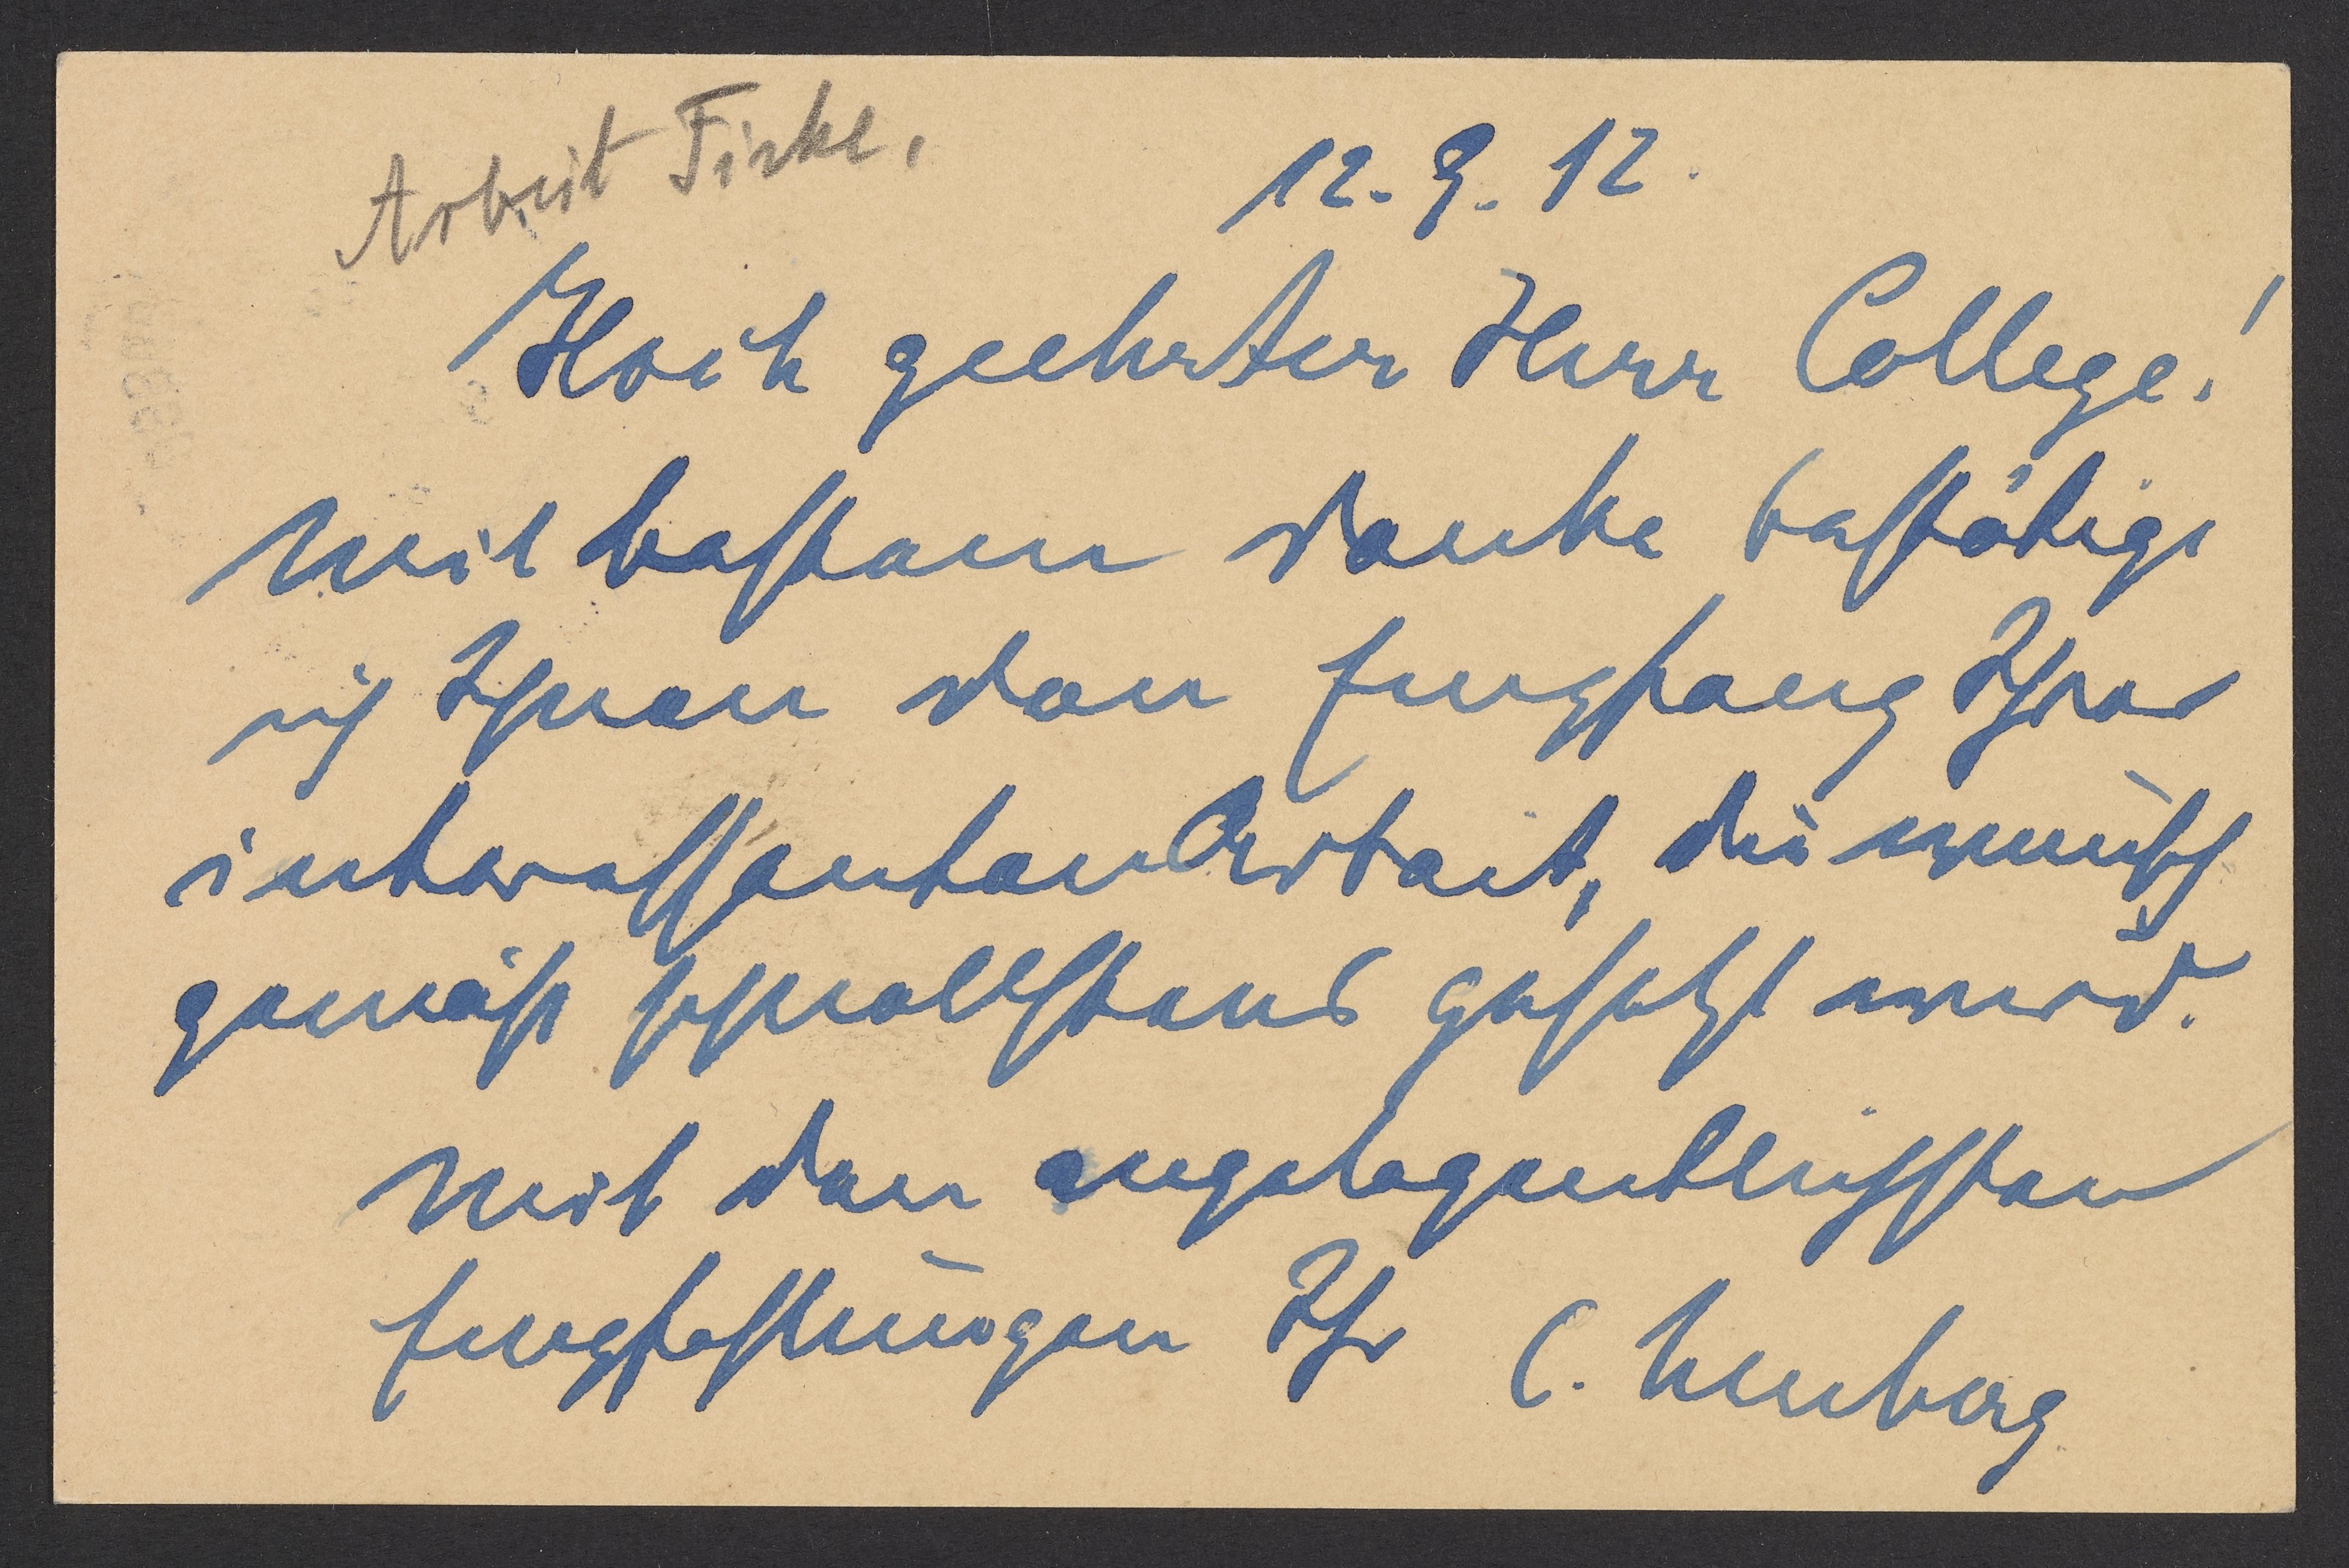 Arbeit Fiske,
12. 9. 12.
Hoch geehrter Herr College!
Mit bestem Danke bestätige
ich Ihnen den Empfang Ihrer
interessanten Arbeit, die wunsch
gemäß schnellstens gesetzt wird.
Mit den angelegentlichsten
Empfehlungen Ihr C. Neuberg